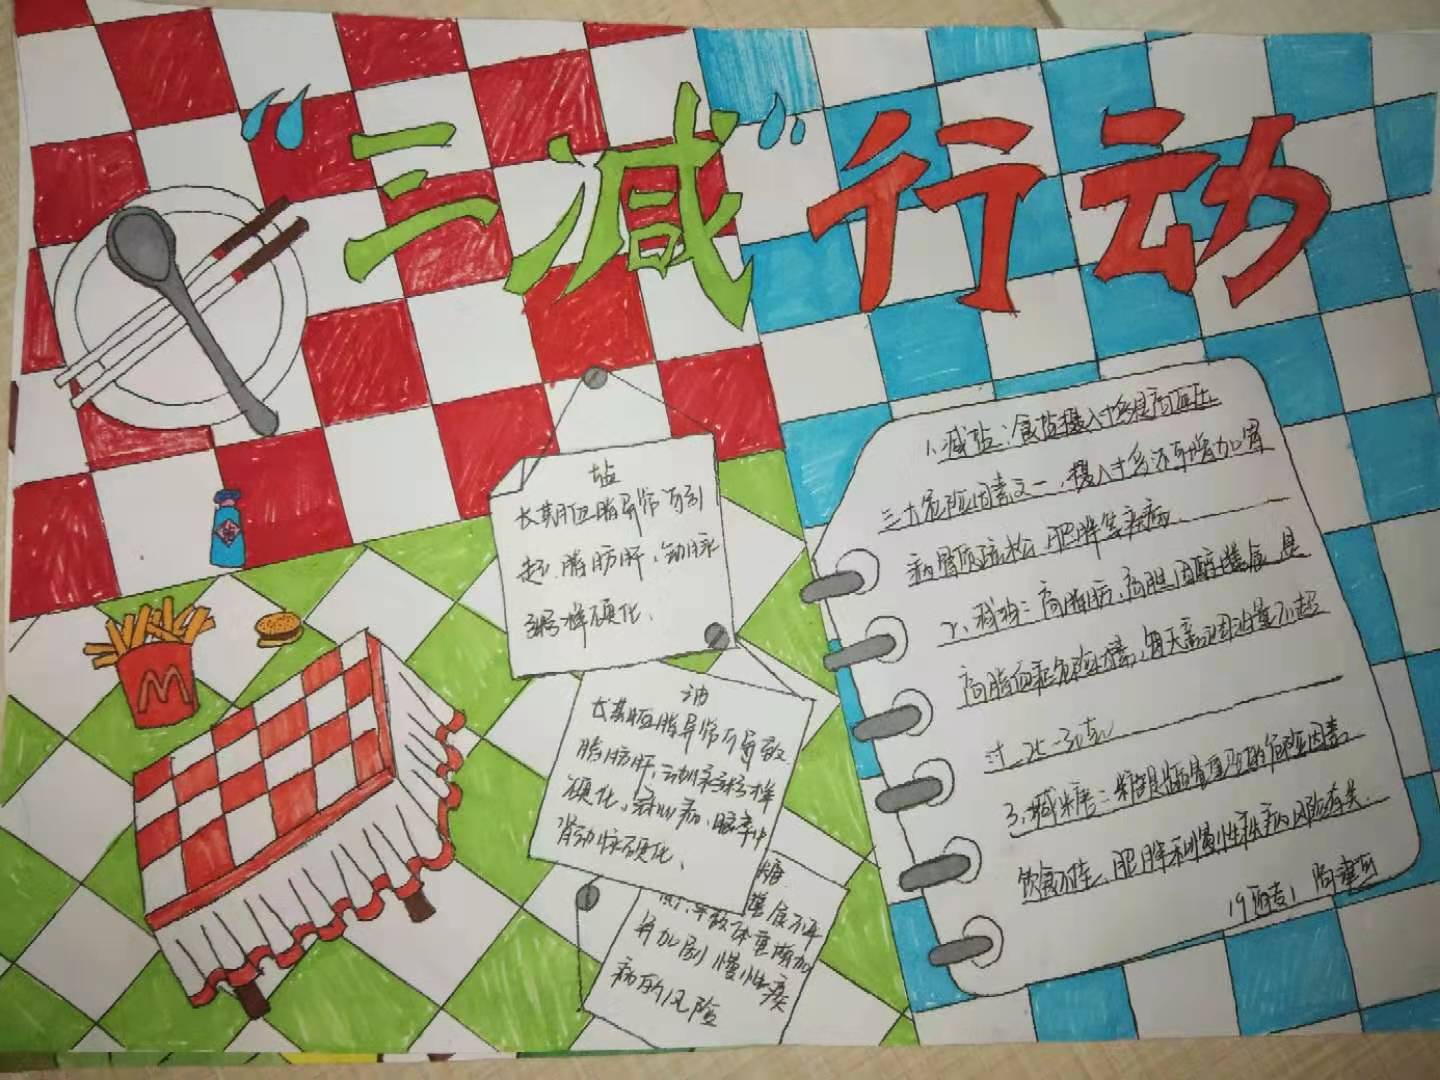 “三减”行动
盐
长期血脂异常可引
起脂肪肝,动脉
粥样硬化、
油
长期血脂异常可导致
脂肪肝,动脉粥样
硬化、冠心病、脑卒中
肾动脉硬化、
糖
导致
膳食不平
体重增加
并加剧慢性疾
病的风险
1、减盐:食盐摄入过多是高血压
三大危险因素之一,摄入过多还可增加胃
病骨质疏松、肥胖等疾病
2、减油:高脂肪、高胆固醇膳食是
高脂血症危险因素,每天烹调油量不超
过25-30克
3、减糖:糖是
重要的危险因素
饮食不
肥胖和慢性疾病风险
M